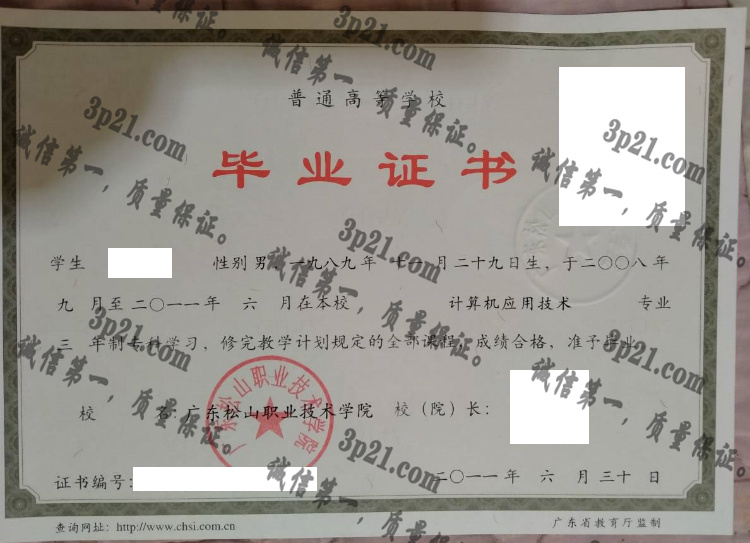 普通高等学校
毕业证书
学生 性别 男，一九八九年 十一月二十九日生，于二〇〇八年
九 月至二〇一一年 六 月在本校 计算机应用技术 专业
三 年制专科学习，修完教学计划规定的全部课程，成绩合格，准予毕业
校 名：广东松山职业技术学院 校（院）长：
广东松山职业技术学院
证书编号： 二〇一一年 六 月 三十 日
查询网址：http://www.chsi.com.cn 广东省教育厅监制
3p21.com
诚信第一，质量保证。
3p21.com
诚信第一，质量保证。
3p21.com
诚信第一，质量保证。
3p21.com
诚信第一，质量保证。
3p21.com
诚信第一，质量保证。
3p21.com
诚信第一，质量保证。
3p21.com
诚信第一，质量保证。
3p21.com